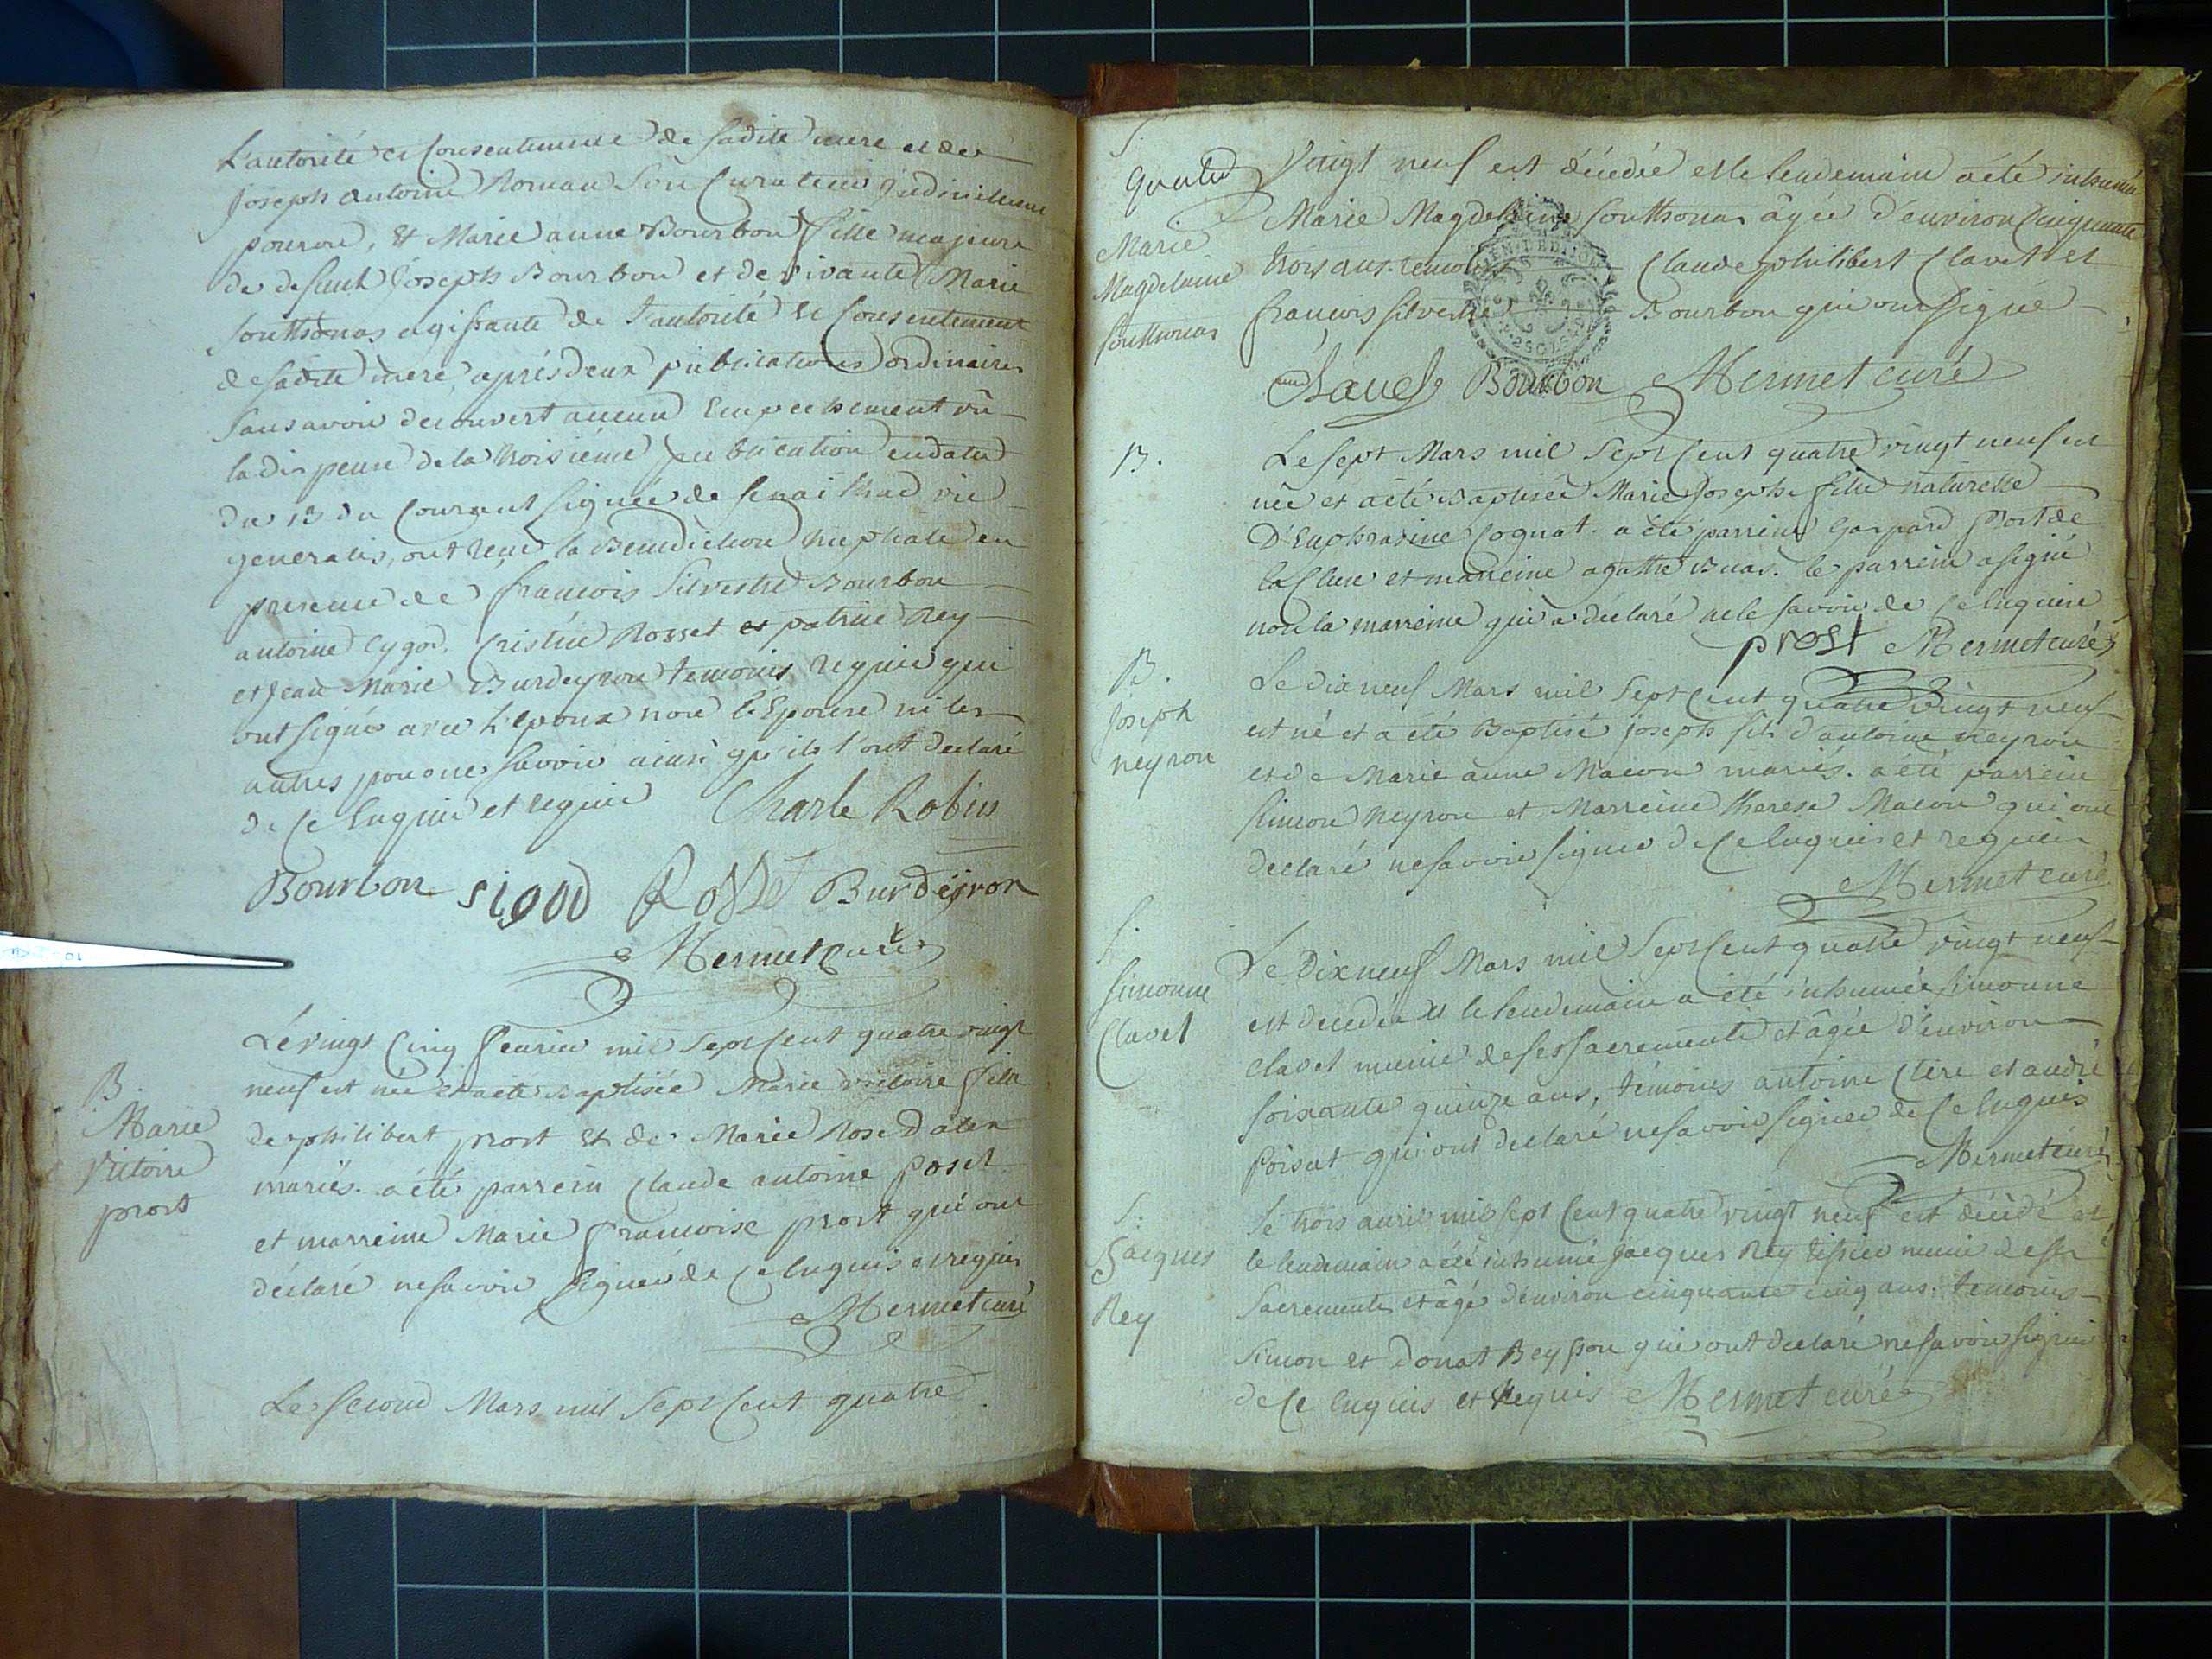 L'autorité et Consentement de sadite mere et de
Joseph antoine Roman son Curateur judiciellement
pourvu, & Marie anne Bourbon fille majeure
de defunt Joseph Bourbon et de vivante Marie
Southonas agissante de l'autorité et Consentement
de sadite mere, après deux publications ordinaires
sans avoir decouvert aucun Empechement vû
la dispense de la troisième publication en date
du 13 du Courant signée de vic
generalis, ont reçu la Benediction nuptiale en
presence de françois Silvestre Bourbon
antoine Cristin Rosset et patrice Rey
et Jean Marie Burdeyron temoins requis qui
ont signés avec l'epoux non l'Epouse ni les
autres pour ne savoir ainsi qu'ils l'ont declaré
de Ce Enquis et requis Charle Robin
Bourbon Rosset Burdeyron
Mermet Curé
B.
Marie
Victoire
prost
Le vingt Cinq fevrier mil Sept Cent quatre vingt
neuf est née et a été Baptisée Marie victoire fille
de philibert prost et de Marie Rose
mariés. a été parrein Claude antoine poset
et marreine Marie françoise prost qui ont
déclaré ne savoir signer de Ce Enquis et requis
Mermet curé
Le second Mars mil Sept Cent quatre
S
quatre Vingt neuf est décédée et le lendemain a été inhumée
Marie
Magdelaine
Southonas
Marie Magdelaine Southonas âgée d'environ Cinquante
trois ans. temoins Claude philibert Clavet et
françois silvestre Bourbon qui ont signé
Bourbon Mermet curé
B.
Le sept Mars mil Sept Cent quatre vingt neuf est
née et a été Baptisée Marie Josephe fille naturelle
D'Euphrasine Cognat. a été parrein Gaspard Prost de
la Cluse et marreine agathe Buas. le parrein a signé
non la marreine qui a déclaré ne le savoir de Ce Enquise
prost Mermet curé
B.
Joseph
neyron
Le dix neuf Mars mil Sept Cent quatre vingt neuf
est né et a été Baptisé joseph fils d'antoine neyron
et de Marie anne Macon mariés. a été parrein
Simon neyron et Marreine therese Macon qui ont
declaré ne savoir signer de Ce Enquis et requis
Mermet curé
S.
Simonne
Clavet
Le Dix neuf Mars mil Sept Cent quatre vingt neuf
est decedée et le lendemain a été inhumée Simonne
Clavet munie de ses sacrements et âgée d'environ
soixante quinze ans, témoins antoine Clere et andré
poisat qui ont declaré ne savoir signer de Ce Enquis
Mermet curé
S.
Jacques
Rey
Le trois avril mil sept Cent quatre vingt neuf est décédé et
le lendemain a été inhumé Jacques Rey tissier muni de ses
Sacrements et âgé d'environ cinquante cinq ans. temoins
Simon et Donat Beysson qui ont declaré ne savoir signer
de Ce Enquis et Requis Mermet curé